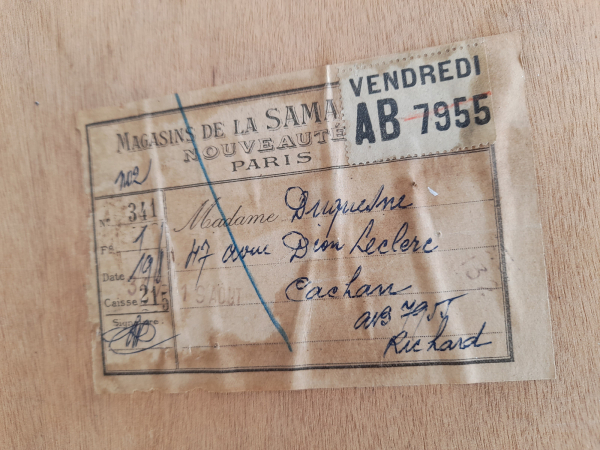 VENDREDI
AB 7955
MAGASINS DE LA SAMA
NOUVEAUTÉ
PARIS
N° 341
Madame Duquesne
Fs 1
47 Dion Leclerc
Date 19
Cachan
Caisse 215
19 AOUT
AB 7955
Signature
Richard